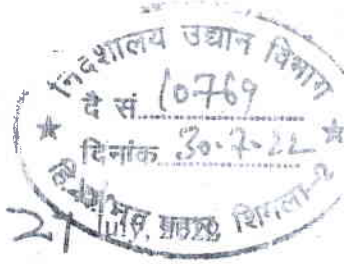 निदेशालय उद्यान विभाग
दै सं 10769
दिनांक 30-7-22
शिमला-2
21 July,